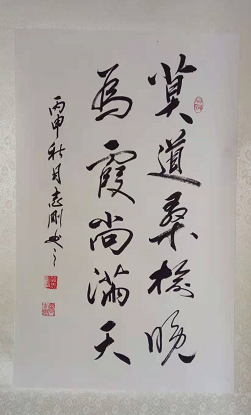 莫道桑榆晚
為霞尚满天
丙申秋月志刚书